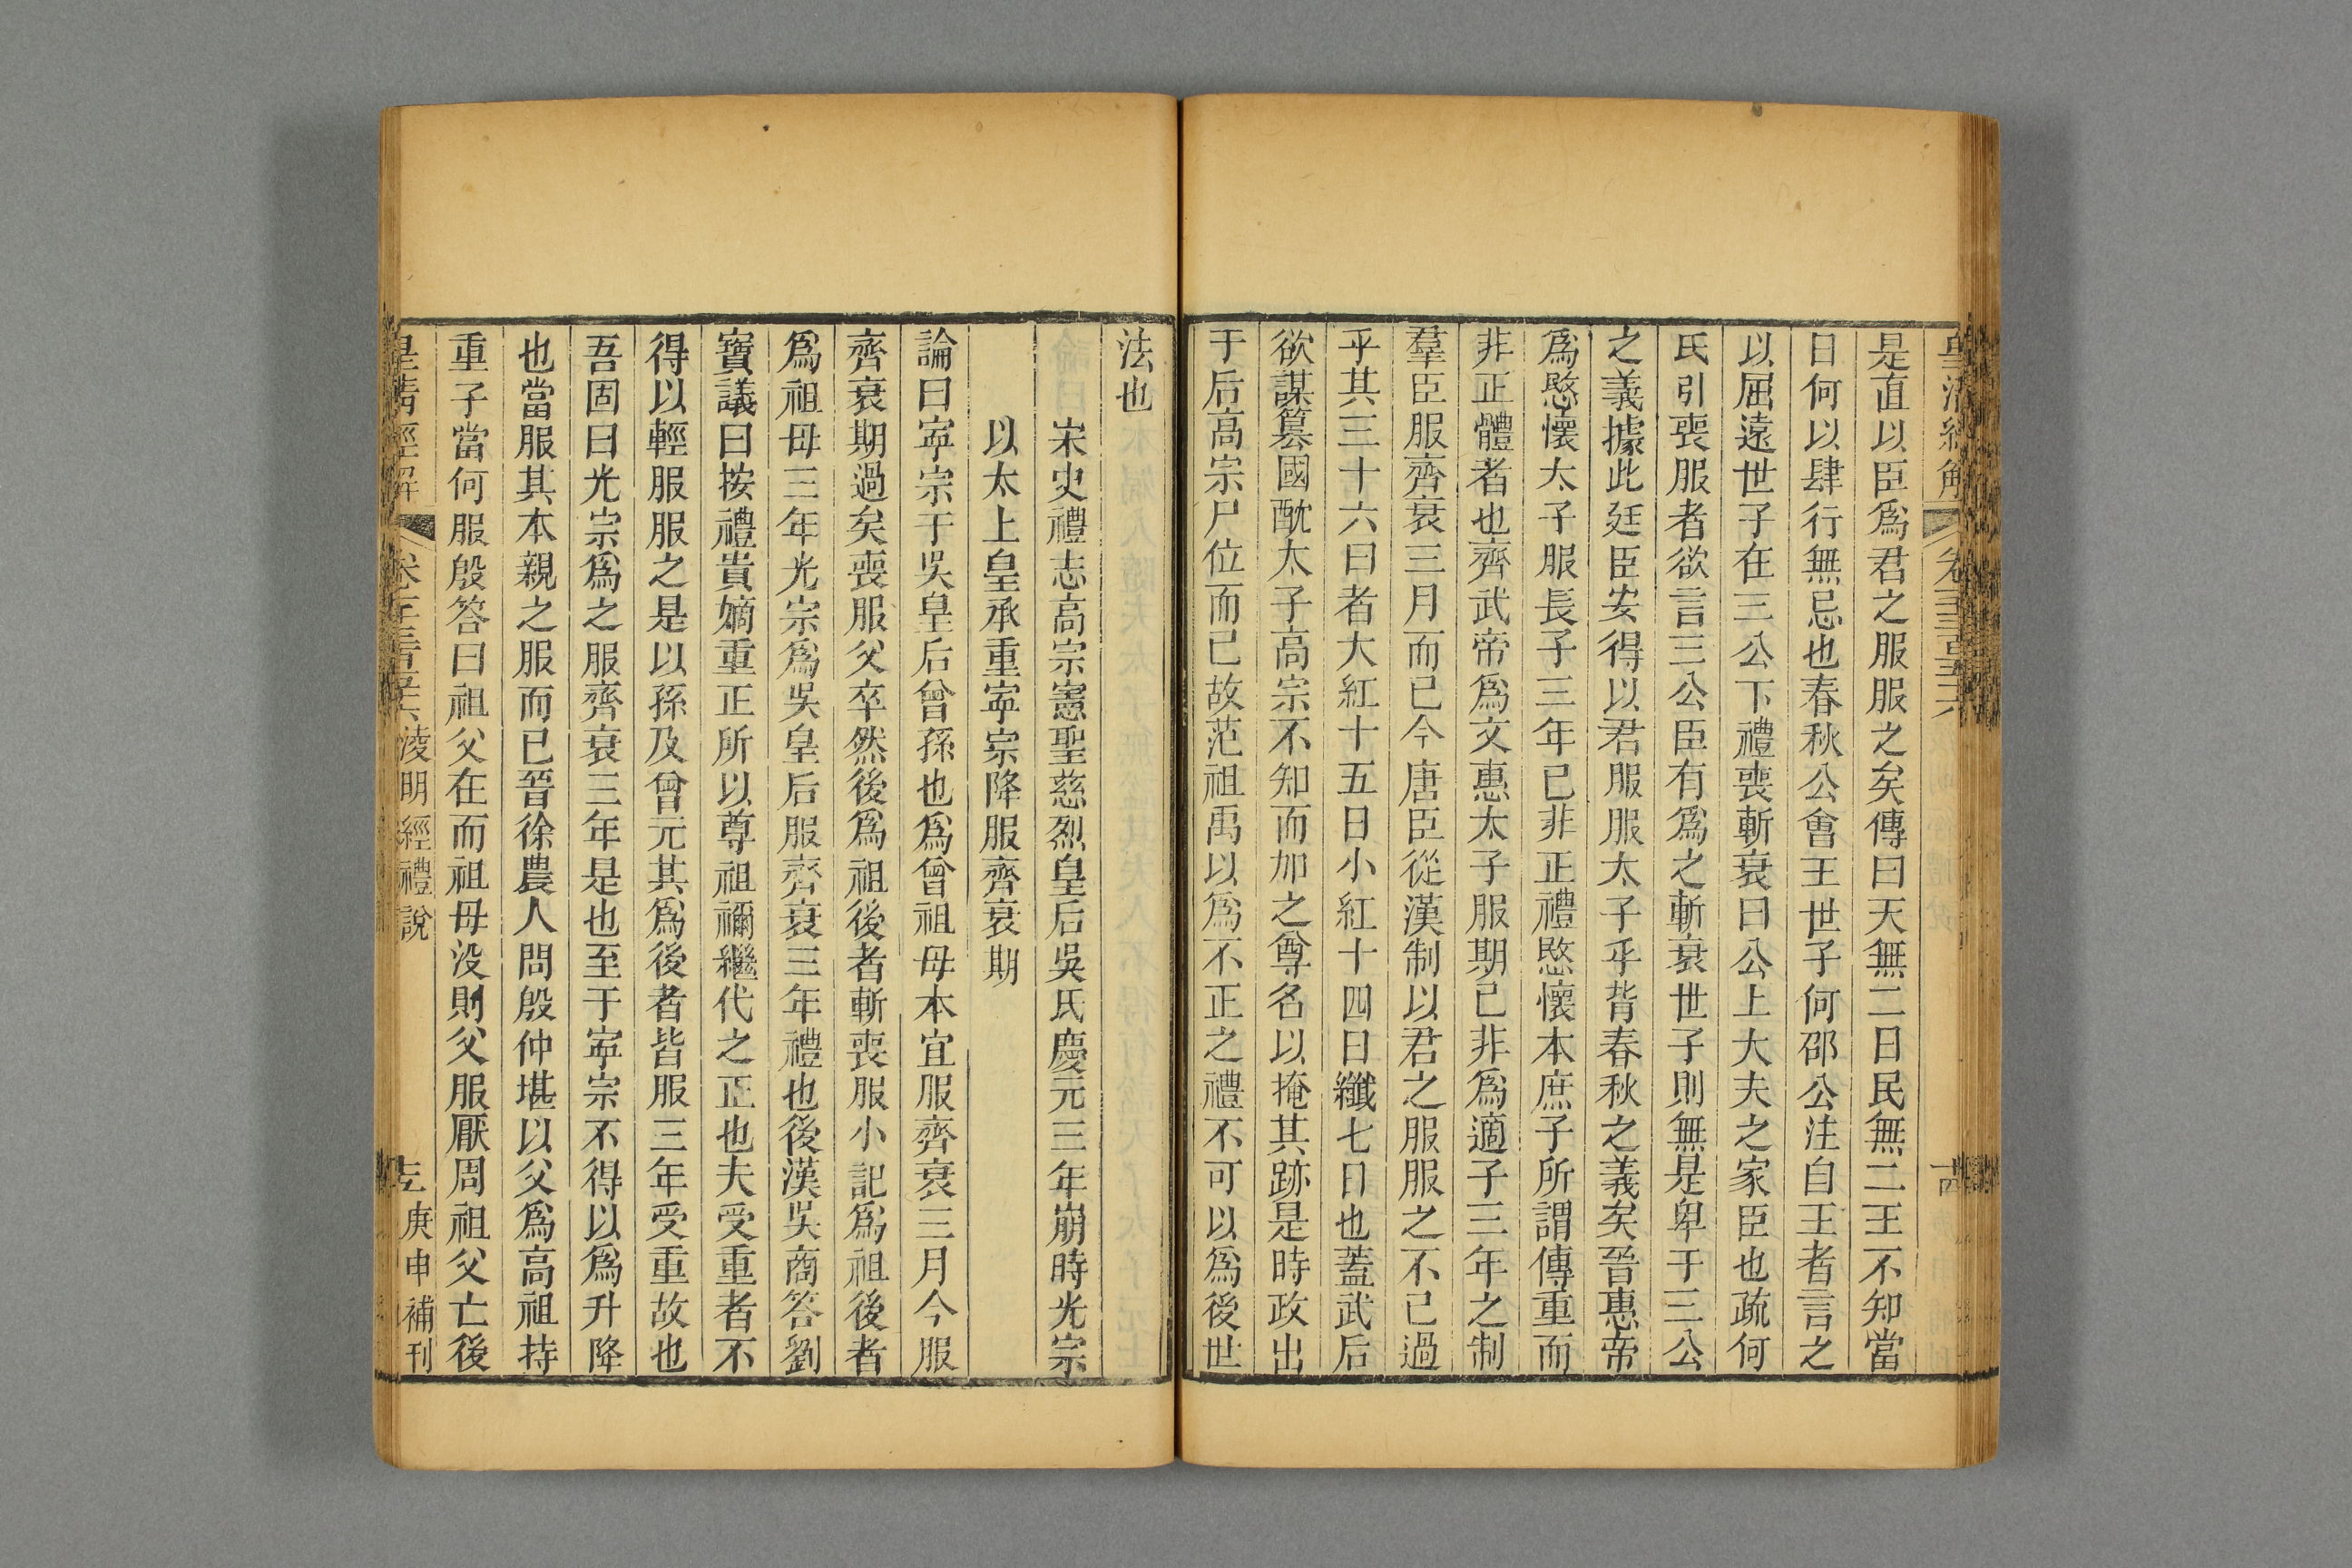 是直以臣爲君之服服之矣傳曰天無二日民無二王不知當
日何以肆行無忌也春秋公會王世子何邵公注自王者言之
以屈遠世子在三公下禮喪斬衰曰公士大夫之家臣也疏何
氏引喪服者欲言三公臣有爲之斬衰世子則無是卑于三公
之義據此廷臣安得以君服服太子乎背春秋之義矣晉惠帝
爲愍懷太子服長子三年已非正禮愍懷本庶子所謂傳重而
非正體者也齊武帝爲文惠太子服期已非爲適子三年之制
羣臣服齊衰三月而已今唐臣從漢制以君之服服之不已過
乎其三十六日者大紅十五日小紅十四日纖七日也蓋武后
欲謀篡國酖太子高宗不知而加之尊名以掩其跡是時政出
于后高宗尸位而已故范祖禹以爲不正之禮不可以爲後世
法也
宋史禮志高宗憲聖慈烈皇后吳氏慶元三年崩時光宗
以太上皇承重寧宗降服齊衰期
論曰寧宗于吳皇后曾孫也爲曾祖母本宜服齊衰三月今服
齊衰期過矣喪服父卒然後爲祖後者斬喪服小記爲祖後者
爲祖母三年光宗爲吳皇后服齊衰三年禮也後漢吳商答劉
寶議曰按禮貴嫡重正所以尊祖禰繼代之正也夫受重者不
得以輕服服之是以孫及曾元其爲後者皆服三年受重故也
吾固曰光宗爲之服齊衰三年是也至于寧宗不得以爲升降
也當服其本親之服而已晉徐農人問殷仲堪以父爲高祖持
重子當何服殷答曰祖父在而祖母没則父服厭周祖父亡後
皇清經解 淩明經禮說 庚申補刊